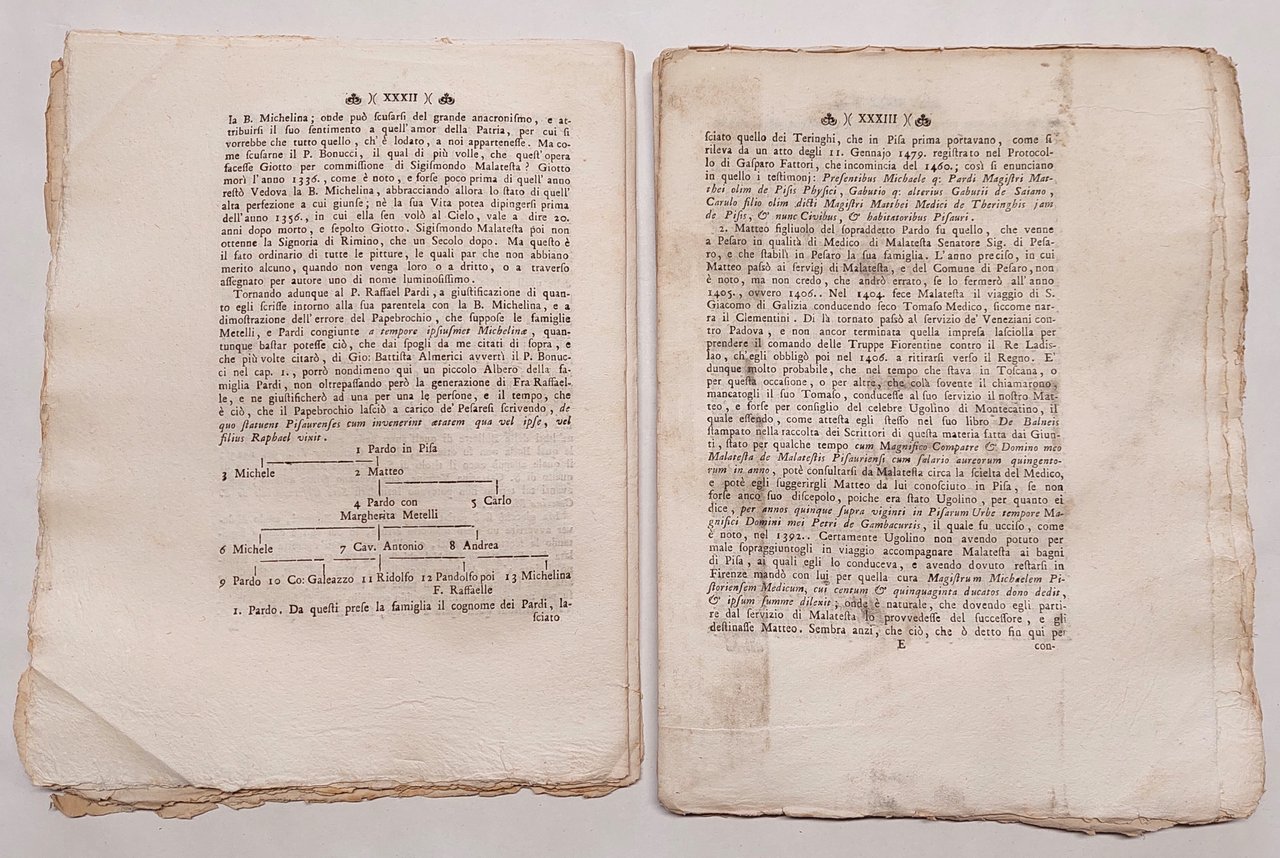 )( XXXII )(
la B. Michelina; onde può ſcuſarſi del grande anacroniſmo, e at-
tribuirſi il ſuo ſentimento a quell'amor della Patria, per cui ſi
vorrebbe che tutto quello, ch' è lodato, a noi apparteneſſe. Ma co-
me ſcuſarne il P. Bonucci, il qual di più volle, che queſt'opera
faceſſe Giotto per commiſſione di Sigiſmondo Malateſta? Giotto
morì l'anno 1336., come è noto, e forſe poco prima di quell' anno
reſtò Vedova la B. Michelina, abbracciando allora lo ſtato di quell'
alta perfezione a cui giunſe; nè la ſua Vita potea dipingerſi prima
dell'anno 1356., in cui ella ſen volò al Cielo, vale a dire 20.
anni dopo morto, e ſepolto Giotto. Sigiſmondo Malateſta poi non
ottenne la Signoria di Rimino, che un Secolo dopo. Ma queſto è
il fato ordinario di tutte le pitture, le quali par che non abbiano
merito alcuno, quando non venga loro o a dritto, o a traverſo
aſſegnato per autore uno di nome luminoſiſſimo.
Tornando adunque al P. Raffael Pardi, a giuſtificazione di quan-
to egli ſcriſſe intorno alla ſua parentela con la B. Michelina, e a
dimoſtrazione dell'errore del Papebrochio, che ſuppoſe le famiglie
Metelli, e Pardi congiunte a tempore ipſiuſmet Michelinæ, quan-
tunque baſtar poteſſe ciò, che dai ſpogli da me citati di ſopra, e
che più volte citarò, di Gio: Battiſta Almerici avvertì il P. Bonuc-
ci nel cap. 1., porrò nondimeno qui un piccolo Albero della fa-
miglia Pardi, non oltrepaſſando però la generazione di Fra Raffael-
le, e ne giuſtificherò ad una per una le perſone, e il tempo, che
è ciò, che il Papebrochio laſciò a carico de' Peſareſi ſcrivendo, de
quo ſtatuent Piſaurenſes cum invenerint ætatem qua vel ipſe, vel
filius Raphael vixit.
1 Pardo in Piſa
3 Michele 2 Matteo
4 Pardo con 5 Carlo
Margherita Metelli
6 Michele 7 Cav. Antonio 8 Andrea
9 Pardo 10 Co: Galeazzo 11 Ridolfo 12 Pandolfo poi 13 Michelina
F. Raffaelle
1. Pardo. Da queſti preſe la famiglia il cognome dei Pardi, la-
ſciato
)( XXXIII )(
ſciato quello dei Teringhi, che in Piſa prima portavano, come ſi
rileva da un atto degli 11. Gennajo 1479. regiſtrato nel Protocol-
lo di Gaſparo Fattori, che incomincia del 1460.; così ſi enunciano
in quello i teſtimonj: Præſentibus Michaele q: Pardi Magiſtri Mat-
thei olim de Piſis Phyſici, Gabutio q: alterius Gabutii de Saiano,
Carulo filio olim dicti Magiſtri Matthei Medici de Theringhis jam
de Piſis, & nunc Civibus, & habitatoribus Piſauri.
2. Matteo figliuolo del sopraddetto Pardo fu quello, che venne
a Peſaro in qualità di Medico di Malateſta Senatore Sig. di Peſa-
ro, e che ſtabilì in Peſaro la ſua famiglia. L'anno preciſo, in cui
Matteo paſsò ai ſervigj di Malateſta, e del Comune di Peſaro, non
è noto, ma non credo, che andrò errato, ſe lo fermerò all' anno
1405., ovvero 1406.. Nel 1404. fece Malateſta il viaggio di S.
Giacomo di Galizia conducendo ſeco Tomaſo Medico, ſiccome nar-
ra il Clementini. Di là tornato paſsò al ſervizio de' Veneziani con-
tro Padova, e non ancor terminata quella impreſa laſciolla per
prendere il comando delle Truppe Fiorentine contro il Re Ladis-
lao, ch'egli obbligò poi nel 1406. a ritirarſi verſo il Regno. E'
dunque molto probabile, che nel tempo che ſtava in Toſcana, o
per queſta occaſione, o per altre, che colà ſovente il chiamarono,
mancatogli il ſuo Tomaſo, conduceſſe al ſuo ſervizio il noſtro Mat-
teo, e forſe per conſiglio del celebre Ugolino di Montecatino, il
quale eſſendo, come atteſta egli ſteſſo nel ſuo libro De Balneis
ſtampato nella raccolta dei Scrittori di queſta materia fatta dai Giun-
ti, ſtato per qualche tempo cum Magnifico Compatre & Domino meo
Malateſta de Malateſtis Piſaurienſi cum ſalario aureorum quingento-
rum in anno, potè conſultarſi da Malateſta circa la ſcielta del Medico,
e potè egli ſuggerirgli Matteo da lui conoſciuto in Piſa, ſe non
forſe anco ſuo diſcepolo, poiche era ſtato Ugolino, per quanto ei
dice, per annos quinque ſupra viginti in Piſarum Urbe tempore Ma-
gnifici Domini mei Petri de Gambacurtis, il quale fu ucciſo, come
è noto, nel 1392.. Certamente Ugolino non avendo potuto per
male ſopraggiuntogli in viaggio accompagnare Malateſta ai bagni
di Piſa, ai quali egli lo conduceva, e avendo dovuto reſtarſi in
Firenze mandò con lui per quella cura Magiſtrum Michaelem Pi-
ſtorienſem Medicum, cui centum & quinquaginta ducatos dono dedit,
& ipſum ſumme dilexit; onde è naturale, che dovendo egli parti-
re dal ſervizio di Malateſta lo provvedeſſe del ſucceſſore, e gli
deſtinaſſe Matteo. Sembra anzi, che ciò, che ò detto fin qui per
E con-